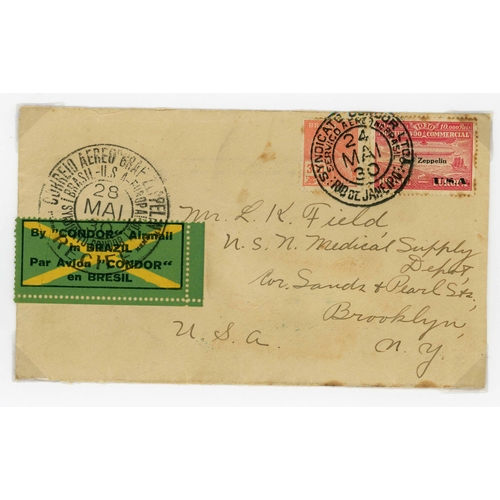 SYNDICATO CONDOR LTDA
SERVIÇO AEREO
24
MAI
30
RIO DE JANEIRO
10.000 Reis
COMMERCIAL
Zeppelin
U.S.A.
CORREIO AEREO GRAF ZEPPELIN
BRASIL-U.S.A-EUROPA
28
MAI
RECIFE
By "CONDOR" Airmail
in BRAZIL
Par Avion "CONDOR"
en BRESIL
Mr. L. K. Field,
U.S.N. Medical Supply
Depot,
Cor. Sands & Pearl Sts,
Brooklyn,
N.Y.
U.S.A.